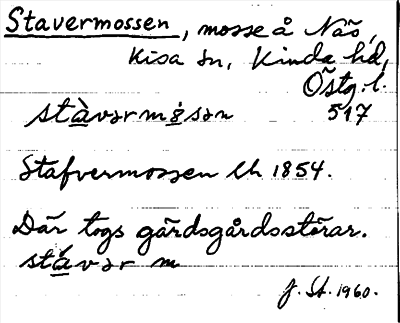 Stavermossen, mosse å Näs,
Kisa sn, Kinda hd,
Östg. l.
stàvərmȯsən 517
Stafvermossen Ch 1854.
Där togs gärdsgårdsstörar.
stávər m
J. St. 1960.